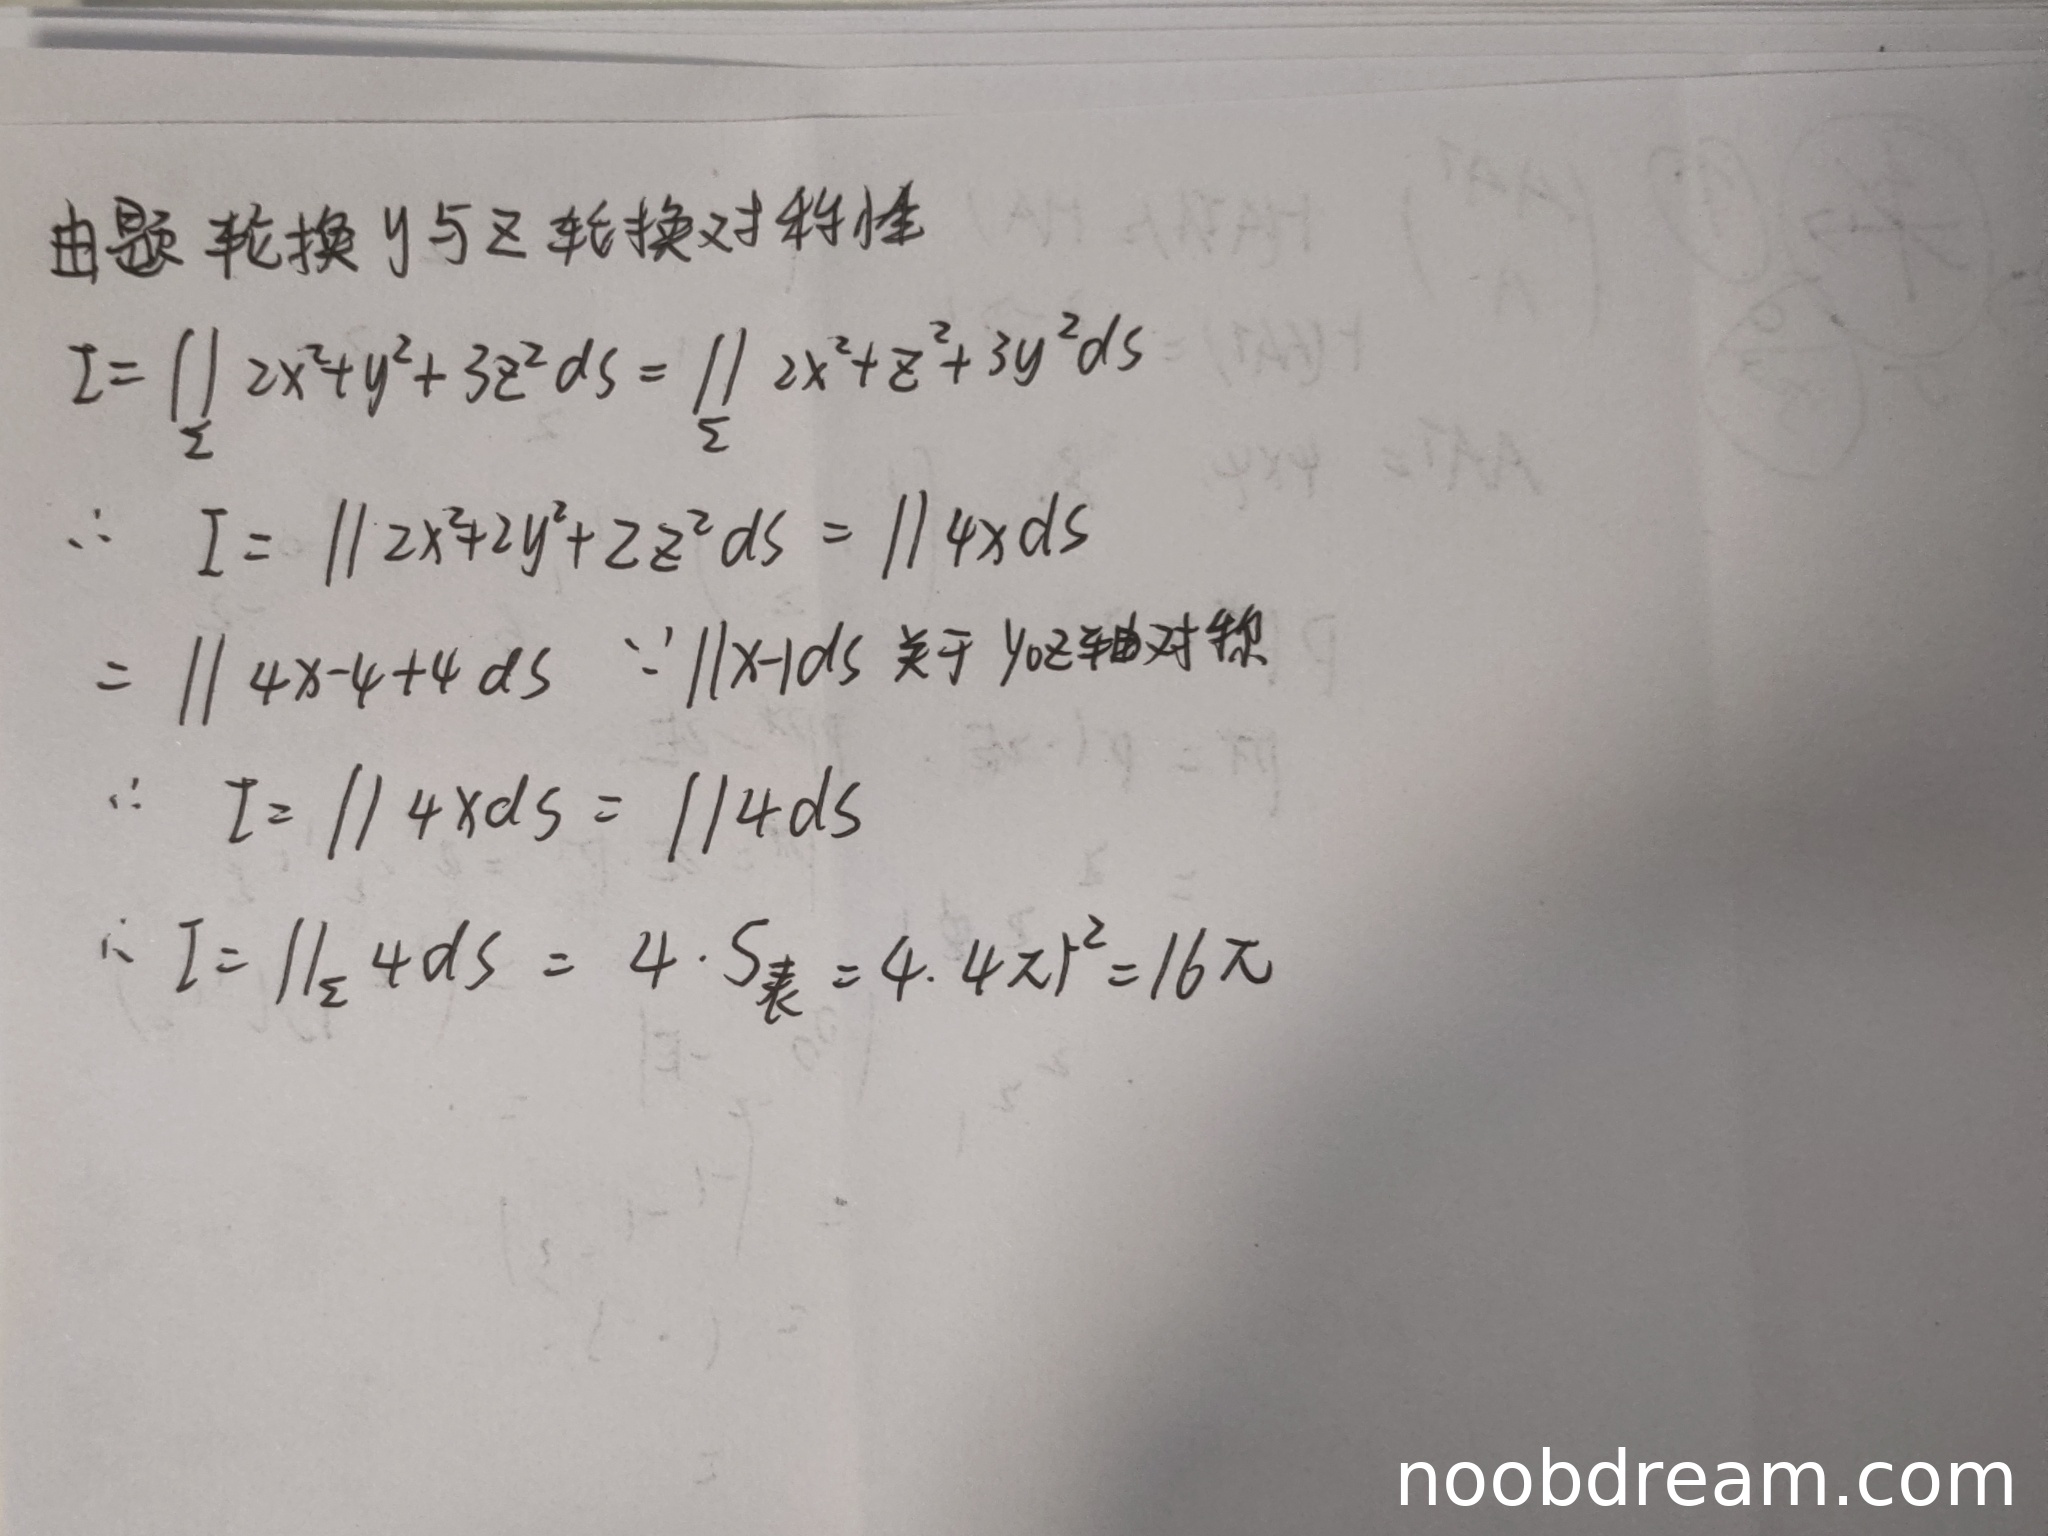 由题 轮换 y与z 轮换对称性
I = ∬Σ 2x²+y²+3z² ds = ∬Σ 2x²+z²+3y² ds
∴ I = ∬ 2x²+2y²+2z² ds = ∬ 4x ds
= ∬ 4x-4+4 ds ∵ ∬x-1ds 关于 yoz轴对称
∴ I = ∬ 4x ds = ∬ 4 ds
∴ I = ∬Σ 4 ds = 4·S表 = 4·4πr² = 16π
noobdream.com